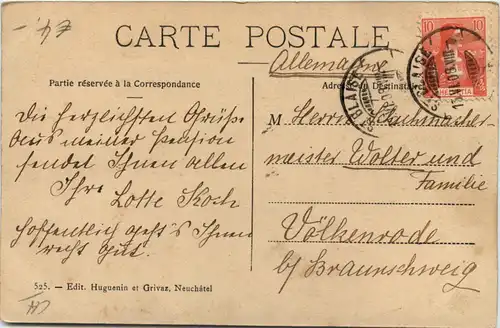 CARTE POSTALE
Allemagne
Partie réservée à la Correspondance
Die herzlichsten Grüße
aus meiner Pension
sendet Ihnen allen
Ihre
Lotte Koch
hoffentlich geht's Ihnen
recht gut.
M Herrn
meister Wolter und
Familie
Völkenrode
b/ Braunschweig
525. — Edit. Huguenin et Grivaz, Neuchâtel
10 10
HELVETIA
ST BLAISE
ST BLAISE